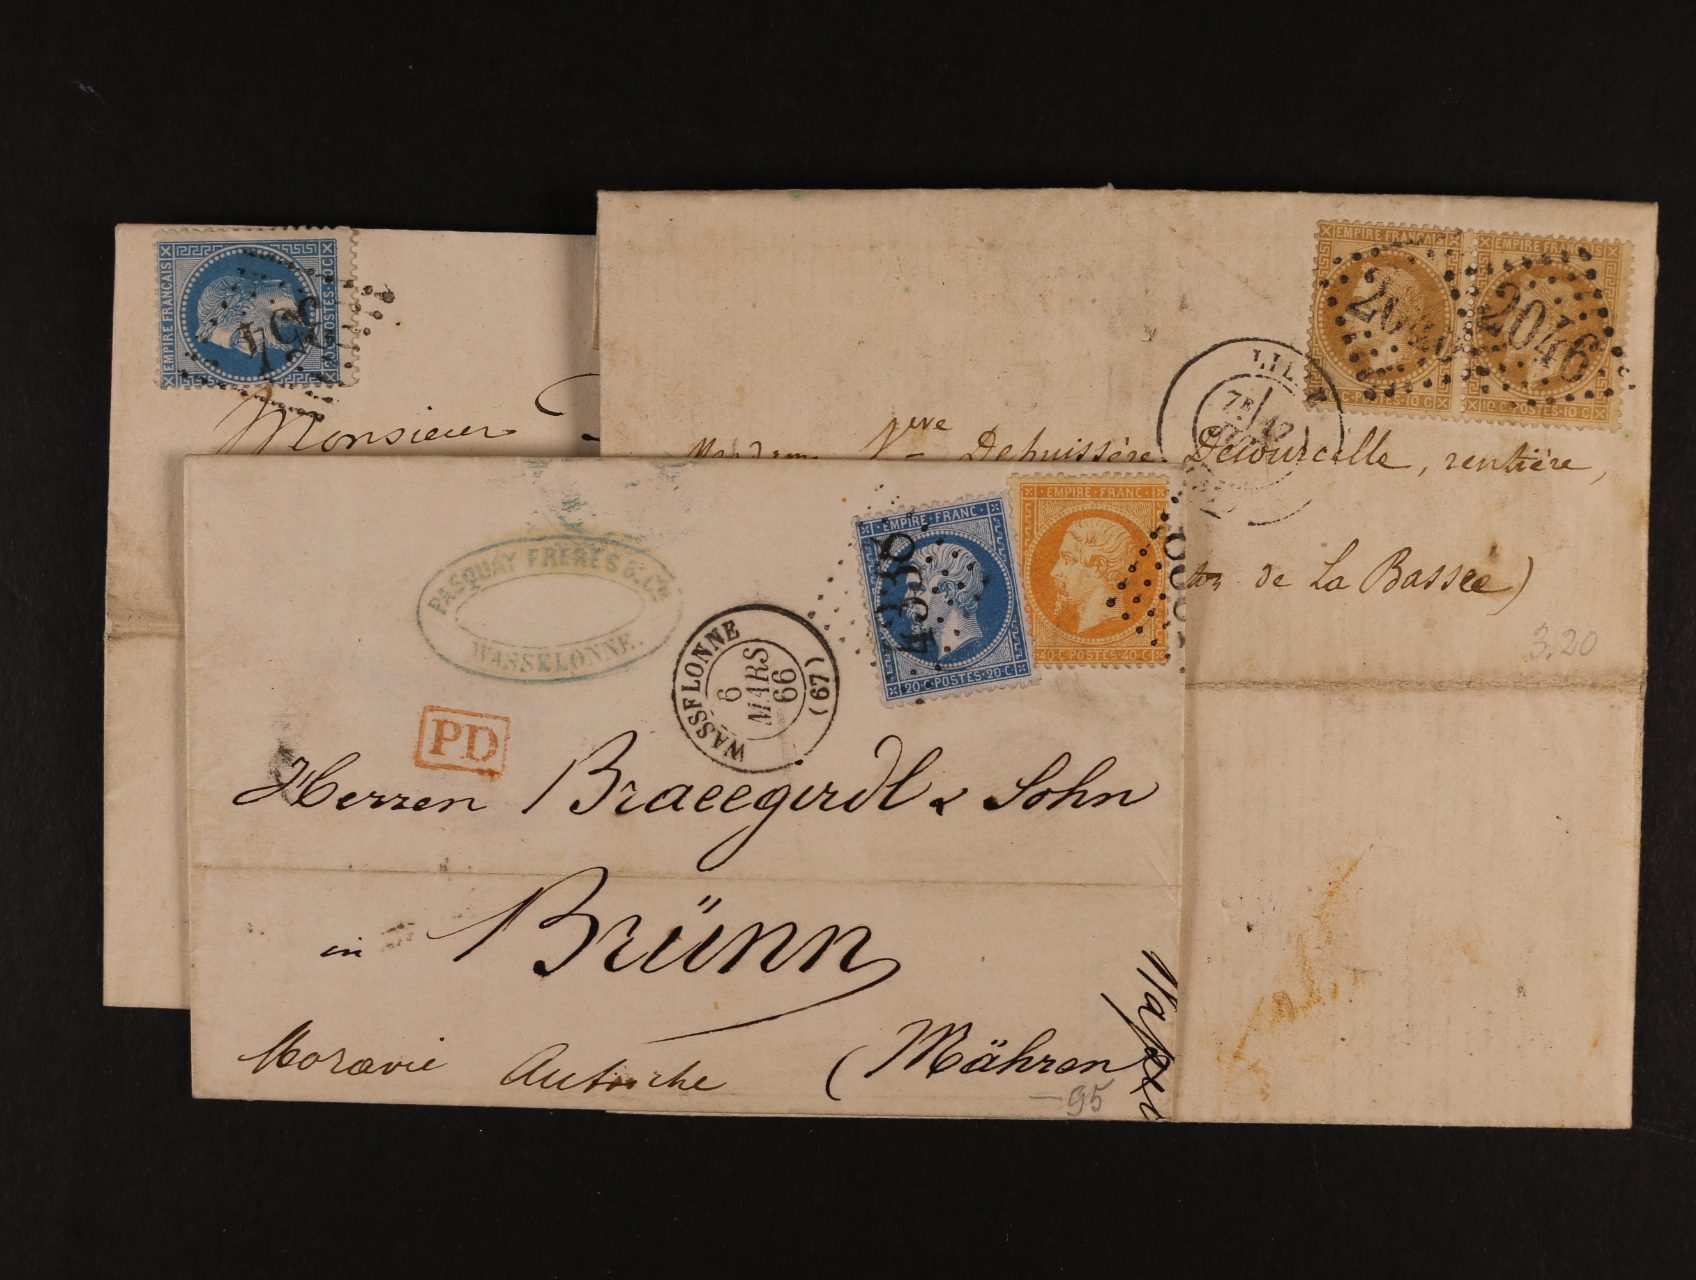 EMPIRE FRANÇAIS
20 C POSTES 20 C
Monsieur
EMPIRE FRANÇAIS
C POSTES 10 C
EMPIRE FRANÇAIS
10 C POSTES 10 C
2046
7E
Vve Depuissère Delourcelle, rentière,
de La Bassée)
3.20
PASQUAY FRERES & Cie
WASSELONNE.
WASSELONNE
6
MARS
66
(67)
EMPIRE FRANC
20 C POSTES 20 C
4336
EMPIRE FRANC
40 C POSTES 40 C
PD
Herren Braeegirdl & Sohn
in Brünn
Moravie Autriche (Mähren
95